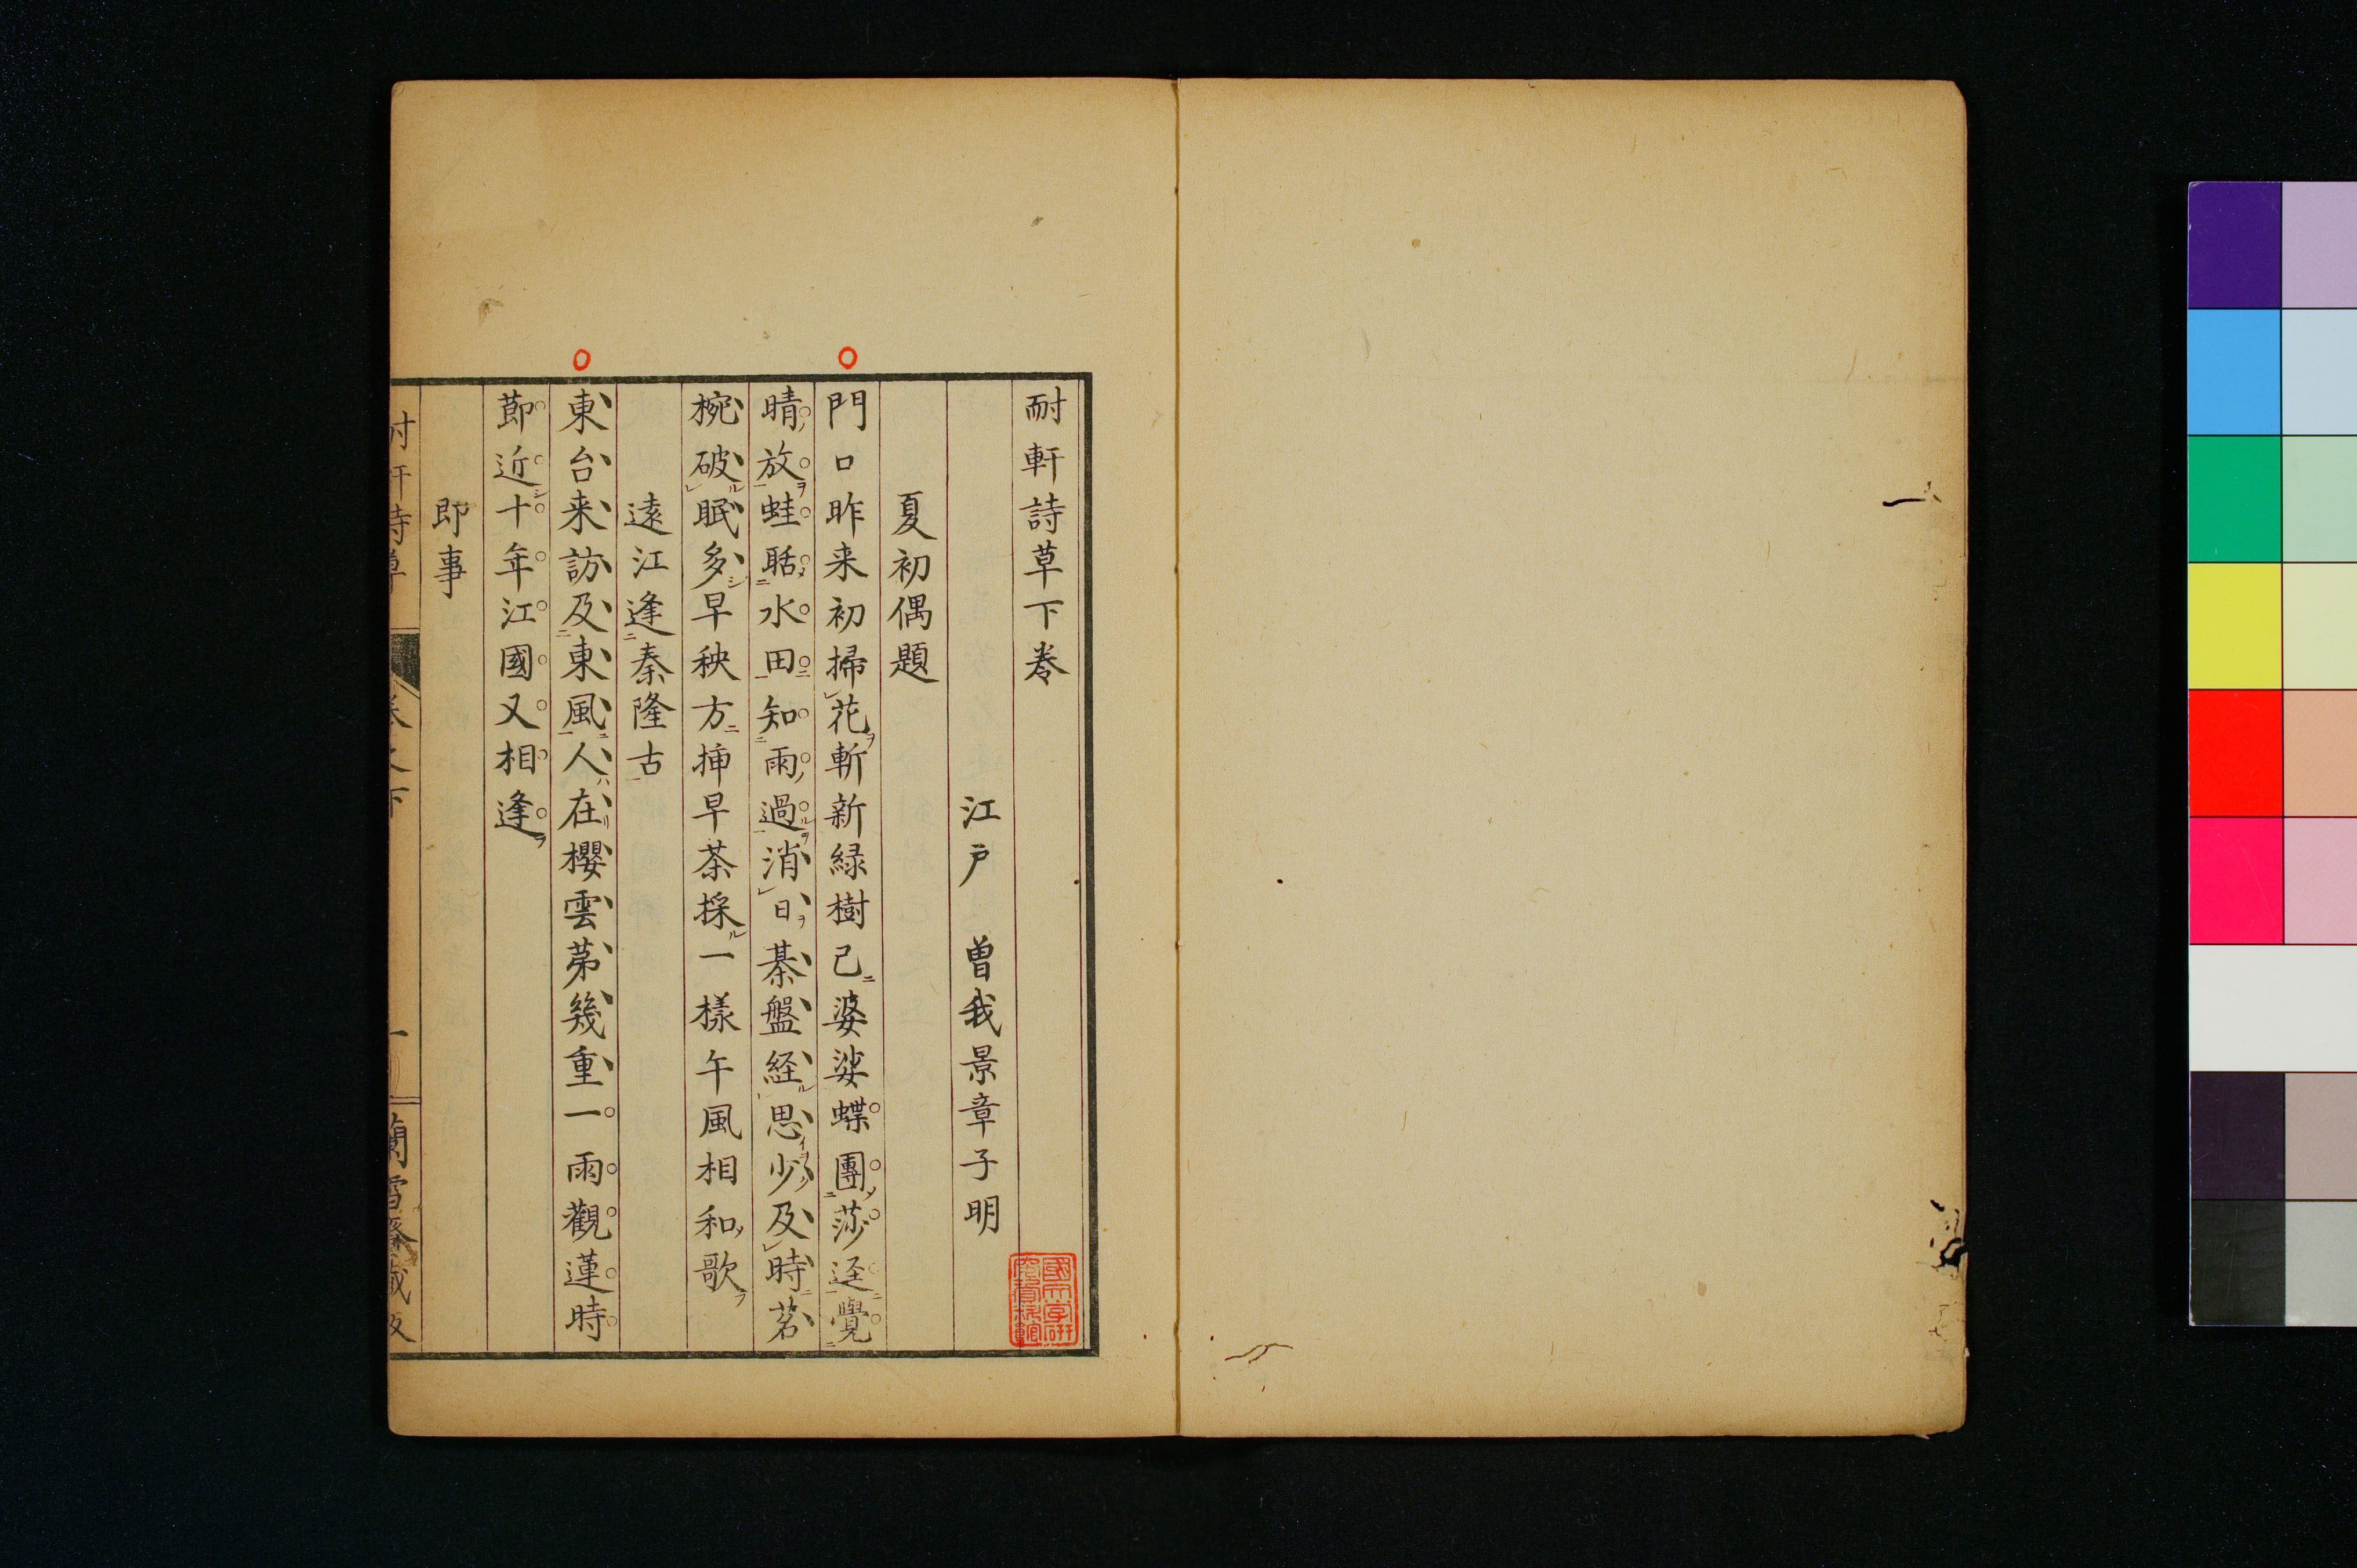 耐軒詩草下巻
江戸　曽我景章子明
夏初偶題
門口昨来初掃花斬新緑樹已婆娑蝶團莎逕覺
晴放蛙聒水田知雨過消日棊盤経思少及時茗
椀破眠多早秧方挿早茶採一樣午風相和歌
遠江逢秦隆古
東台来訪及東風人在櫻雲苐幾重一雨觀蓮時
節近十年江國又相逢
即事
耐軒詩草
巻之下
一
蘭雪齋蔵板